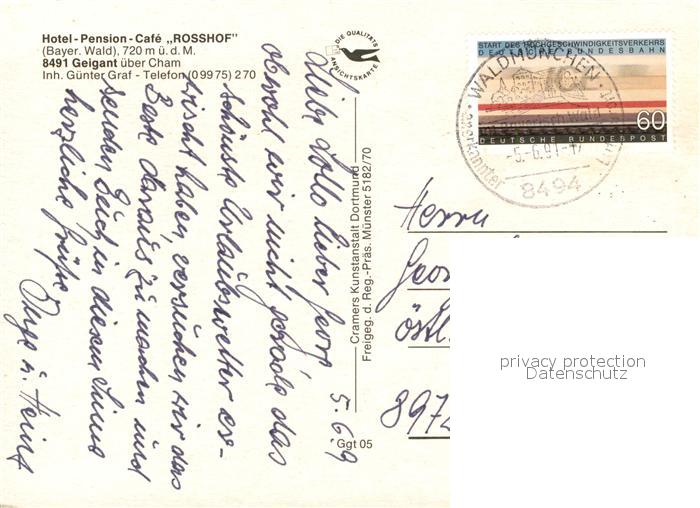 Hotel-Pension-Café „ROSSHOF"
(Bayer. Wald), 720 m ü. d. M.
8491 Geigant über Cham
Inh. Günter Graf - Telefon (0 99 75) 270
DIE QUALITÄTS
ANSICHTSKARTE
START DES HOCHGESCHWINDIGKEITSVERKEHRS
DEUTSCHE BUNDESBAHN
60
DEUTSCHE BUNDESPOST
WALDMÜNCHEN
anerkannter
-5.-6.91-17
8494
5.6.9
Liebe Lollo lieber
obwohl wir nicht gerade das
schönste Urlaubswetter er-
wischt haben, versuchen wir das
Beste daraus zu machen und
senden Euch in diesem Sinne
herzliche Grüße
Inge u. Heinz
Cramers Kunstanstalt Dortmund
Freigeg. d. Reg.-Präs. Münster 5182/70
Ggt 05
Herrn
Geor
Östl.
8972
privacy protection
Datenschutz